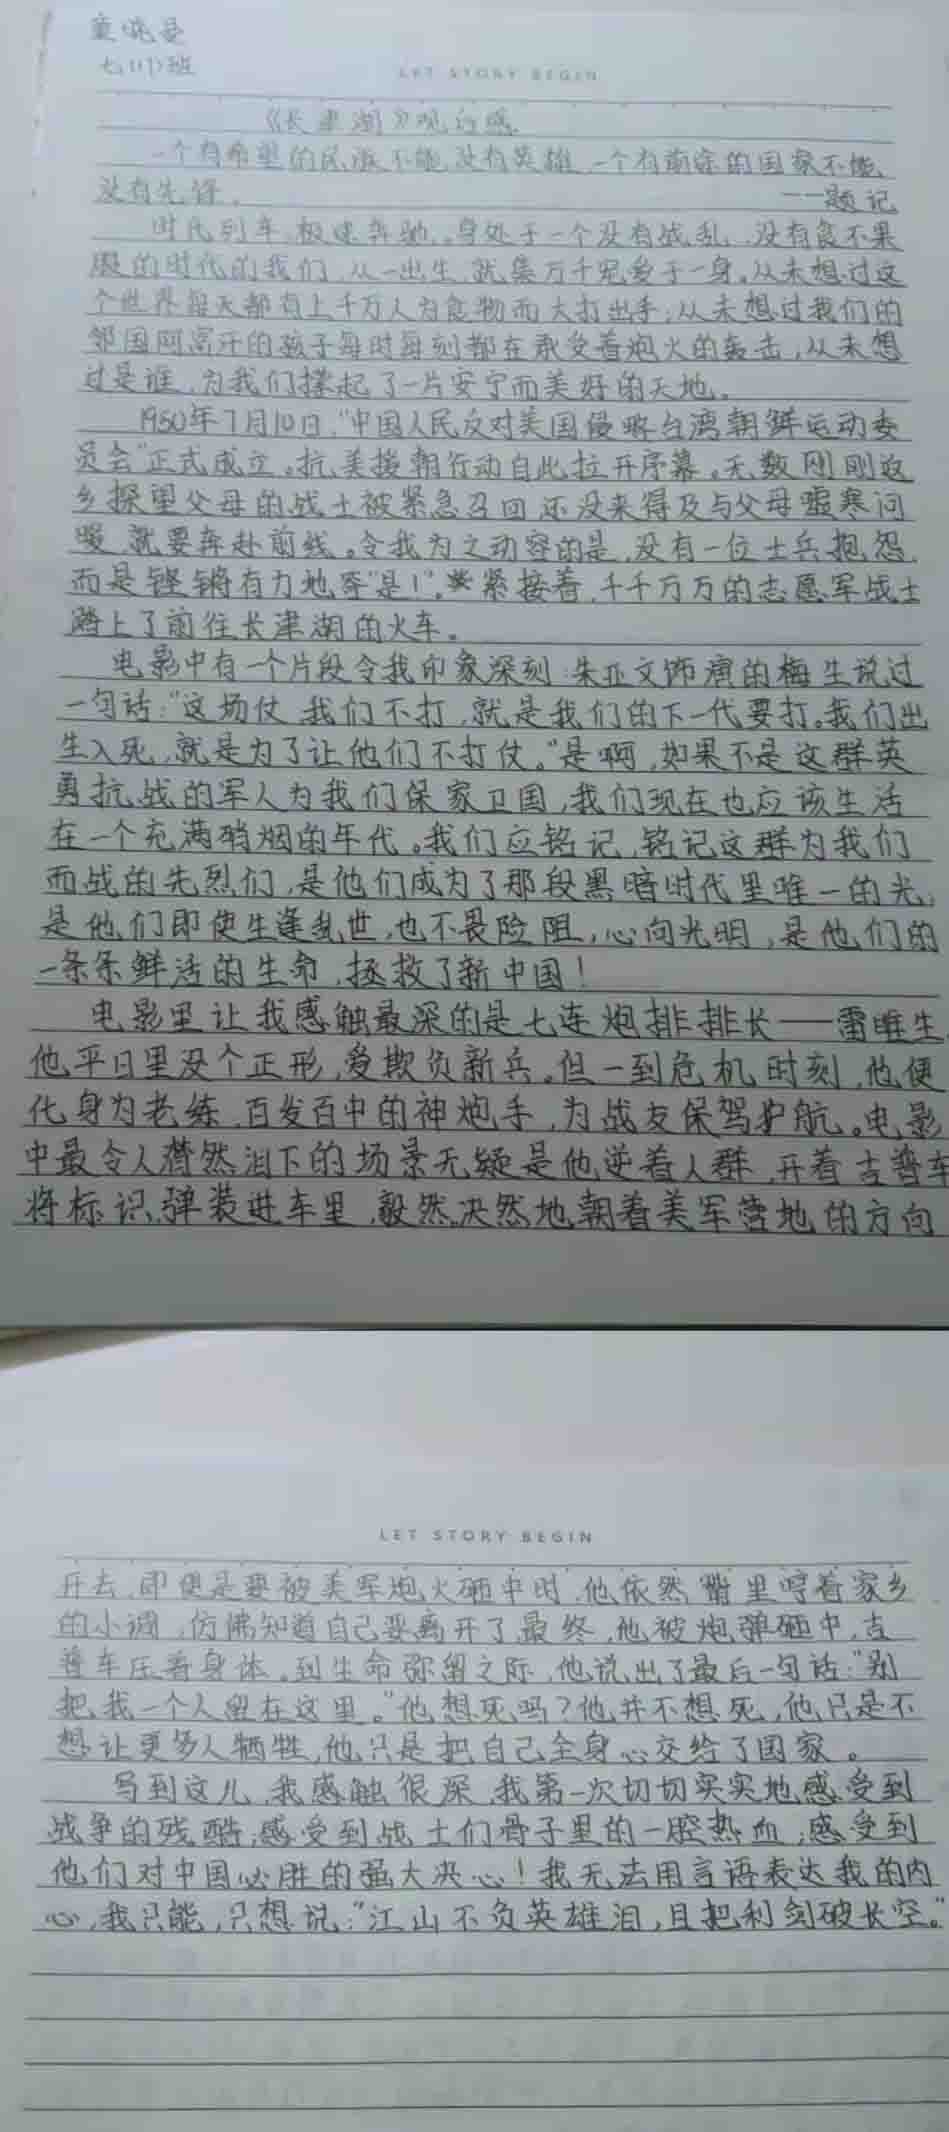 七(1)班
LET STORY BEGIN
《长津湖》观后感
一个有希望的民族不能没有英雄,一个有前途的国家不能
没有先锋。 ——题记
时代列车,极速奔驰。身处于一个没有战乱,没有食不果
腹的时代的我们,从一出生,就集万千宠爱于一身。从未想过这
个世界每天都有上千万人为食物而大打出手;从未想过我们的
邻国阿富汗的孩子每时每刻都在承受着炮火的轰击,从未想
过是谁,为我们撑起了一片安宁而美好的天地。
1950年7月10日,“中国人民反对美国侵略台湾朝鲜运动委
员会”正式成立。抗美援朝行动自此拉开序幕。无数刚刚返
乡探望父母的战士被紧急召回,还没来得及与父母嘘寒问
暖,就要奔赴前线。令我为之动容的是,没有一位士兵抱怨,
而是铿锵有力地答“是!”。紧接着,千千万万的志愿军战士
踏上了前往长津湖的火车。
电影中有一个片段令我印象深刻:朱亚文饰演的梅生说过
一句话:“这场仗,我们不打,就是我们的下一代要打。我们出
生入死,就是为了让他们不打仗。”是啊,如果不是这群英
勇抗战的军人为我们保家卫国,我们现在也应该生活
在一个充满硝烟的年代。我们应铭记,铭记这群为我们
而战的先烈们,是他们成为了那段黑暗时代里唯一的光,
是他们即使生逢乱世,也不畏险阻,心向光明,是他们的
一条条鲜活的生命,拯救了新中国!
电影里让我感触最深的是七连炮排排长——雷睢生,
他平日里没个正形,爱欺负新兵。但一到危机时刻,他便
化身为老练,百发百中的神炮手,为战友保驾护航。电影
中最令人潸然泪下的场景无疑是他逆着人群,开着吉普车
将标识弹装进车里,毅然决然地朝着美军营地的方向
LET STORY BEGIN
开去,即便是要被美军炮火砸中时,他依然嘴里哼着家乡
的小调,仿佛知道自己要离开了,最终,他被炮弹砸中,吉
普车压着身体。到生命弥留之际,他说出了最后一句话:“别
把我一个人留在这里。”他想死吗?他并不想死,他只是不
想让更多人牺牲,他只是把自己全身心交给了国家。
写到这儿,我感触很深,我第一次切切实实地感受到
战争的残酷,感受到战士们骨子里的一腔热血,感受到
他们对中国必胜的强大决心!我无法用言语表达我的内
心,我只能,只想说:“江山不负英雄泪,且把利剑破长空。”